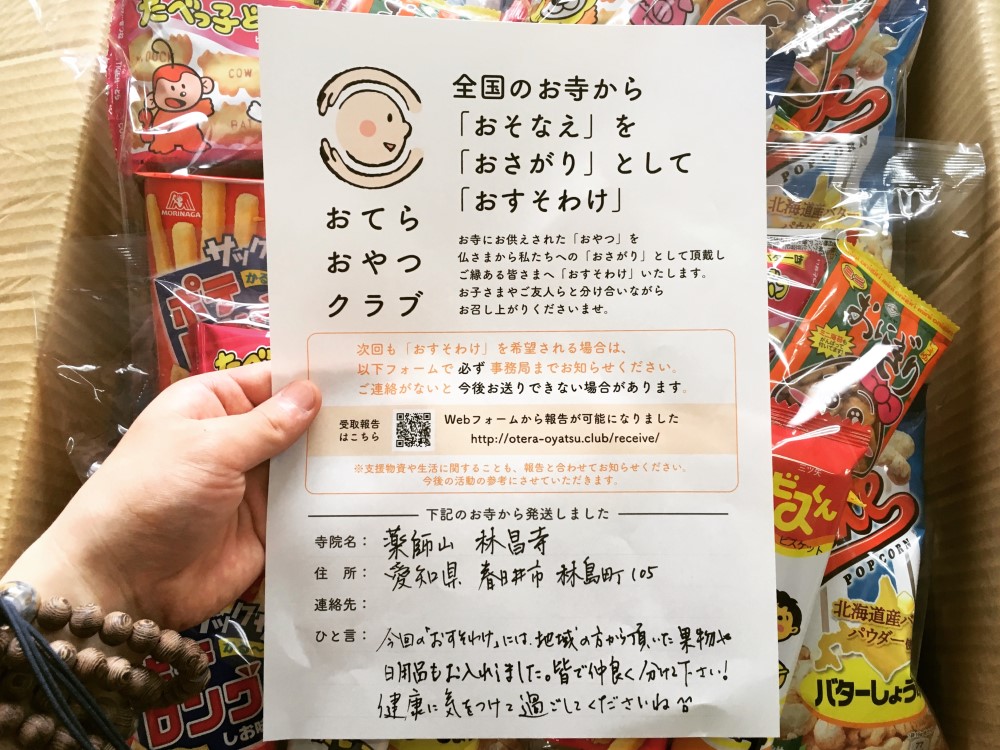 たべっ子ど
COW
MORINAGA
サック
ポテ
たべ
ロング
しお味
おてら
おやつ
クラブ
全国のお寺から
「おそなえ」を
「おさがり」として
「おすそわけ」
お寺にお供えされた「おやつ」を
仏さまから私たちへの「おさがり」として頂戴し
ご縁ある皆さまへ「おすそわけ」いたします。
お子さまやご友人らと分け合いながら
お召し上がりくださいませ。
次回も「おすそわけ」を希望される場合は、
以下フォームで 必ず 事務局までお知らせください。
ご連絡がないと 今後お送りできない場合があります。
受取報告
はこちら
Webフォームから報告が可能になりました
http://otera-oyatsu.club/receive/
※支援物資や生活に関することも、報告と合わせてお知らせください。
今後の活動の参考にさせていただきます。
下記のお寺から発送しました
寺院名: 薬師山 林昌寺
住 所: 愛知県 春日井市 林島町 105
連絡先:
ひと言: 今回の「おすそわけ」には、地域の方から頂いた果物や
日用品もお入れしました。皆で仲良く分けて下さい!
健康に気をつけて過ごしてくださいね
POPCORN
北海道産バタ
パウダー
おにぎり
ビスくん
ビスケット
POPCORN
北海道産バ
パウダー
バターしょう